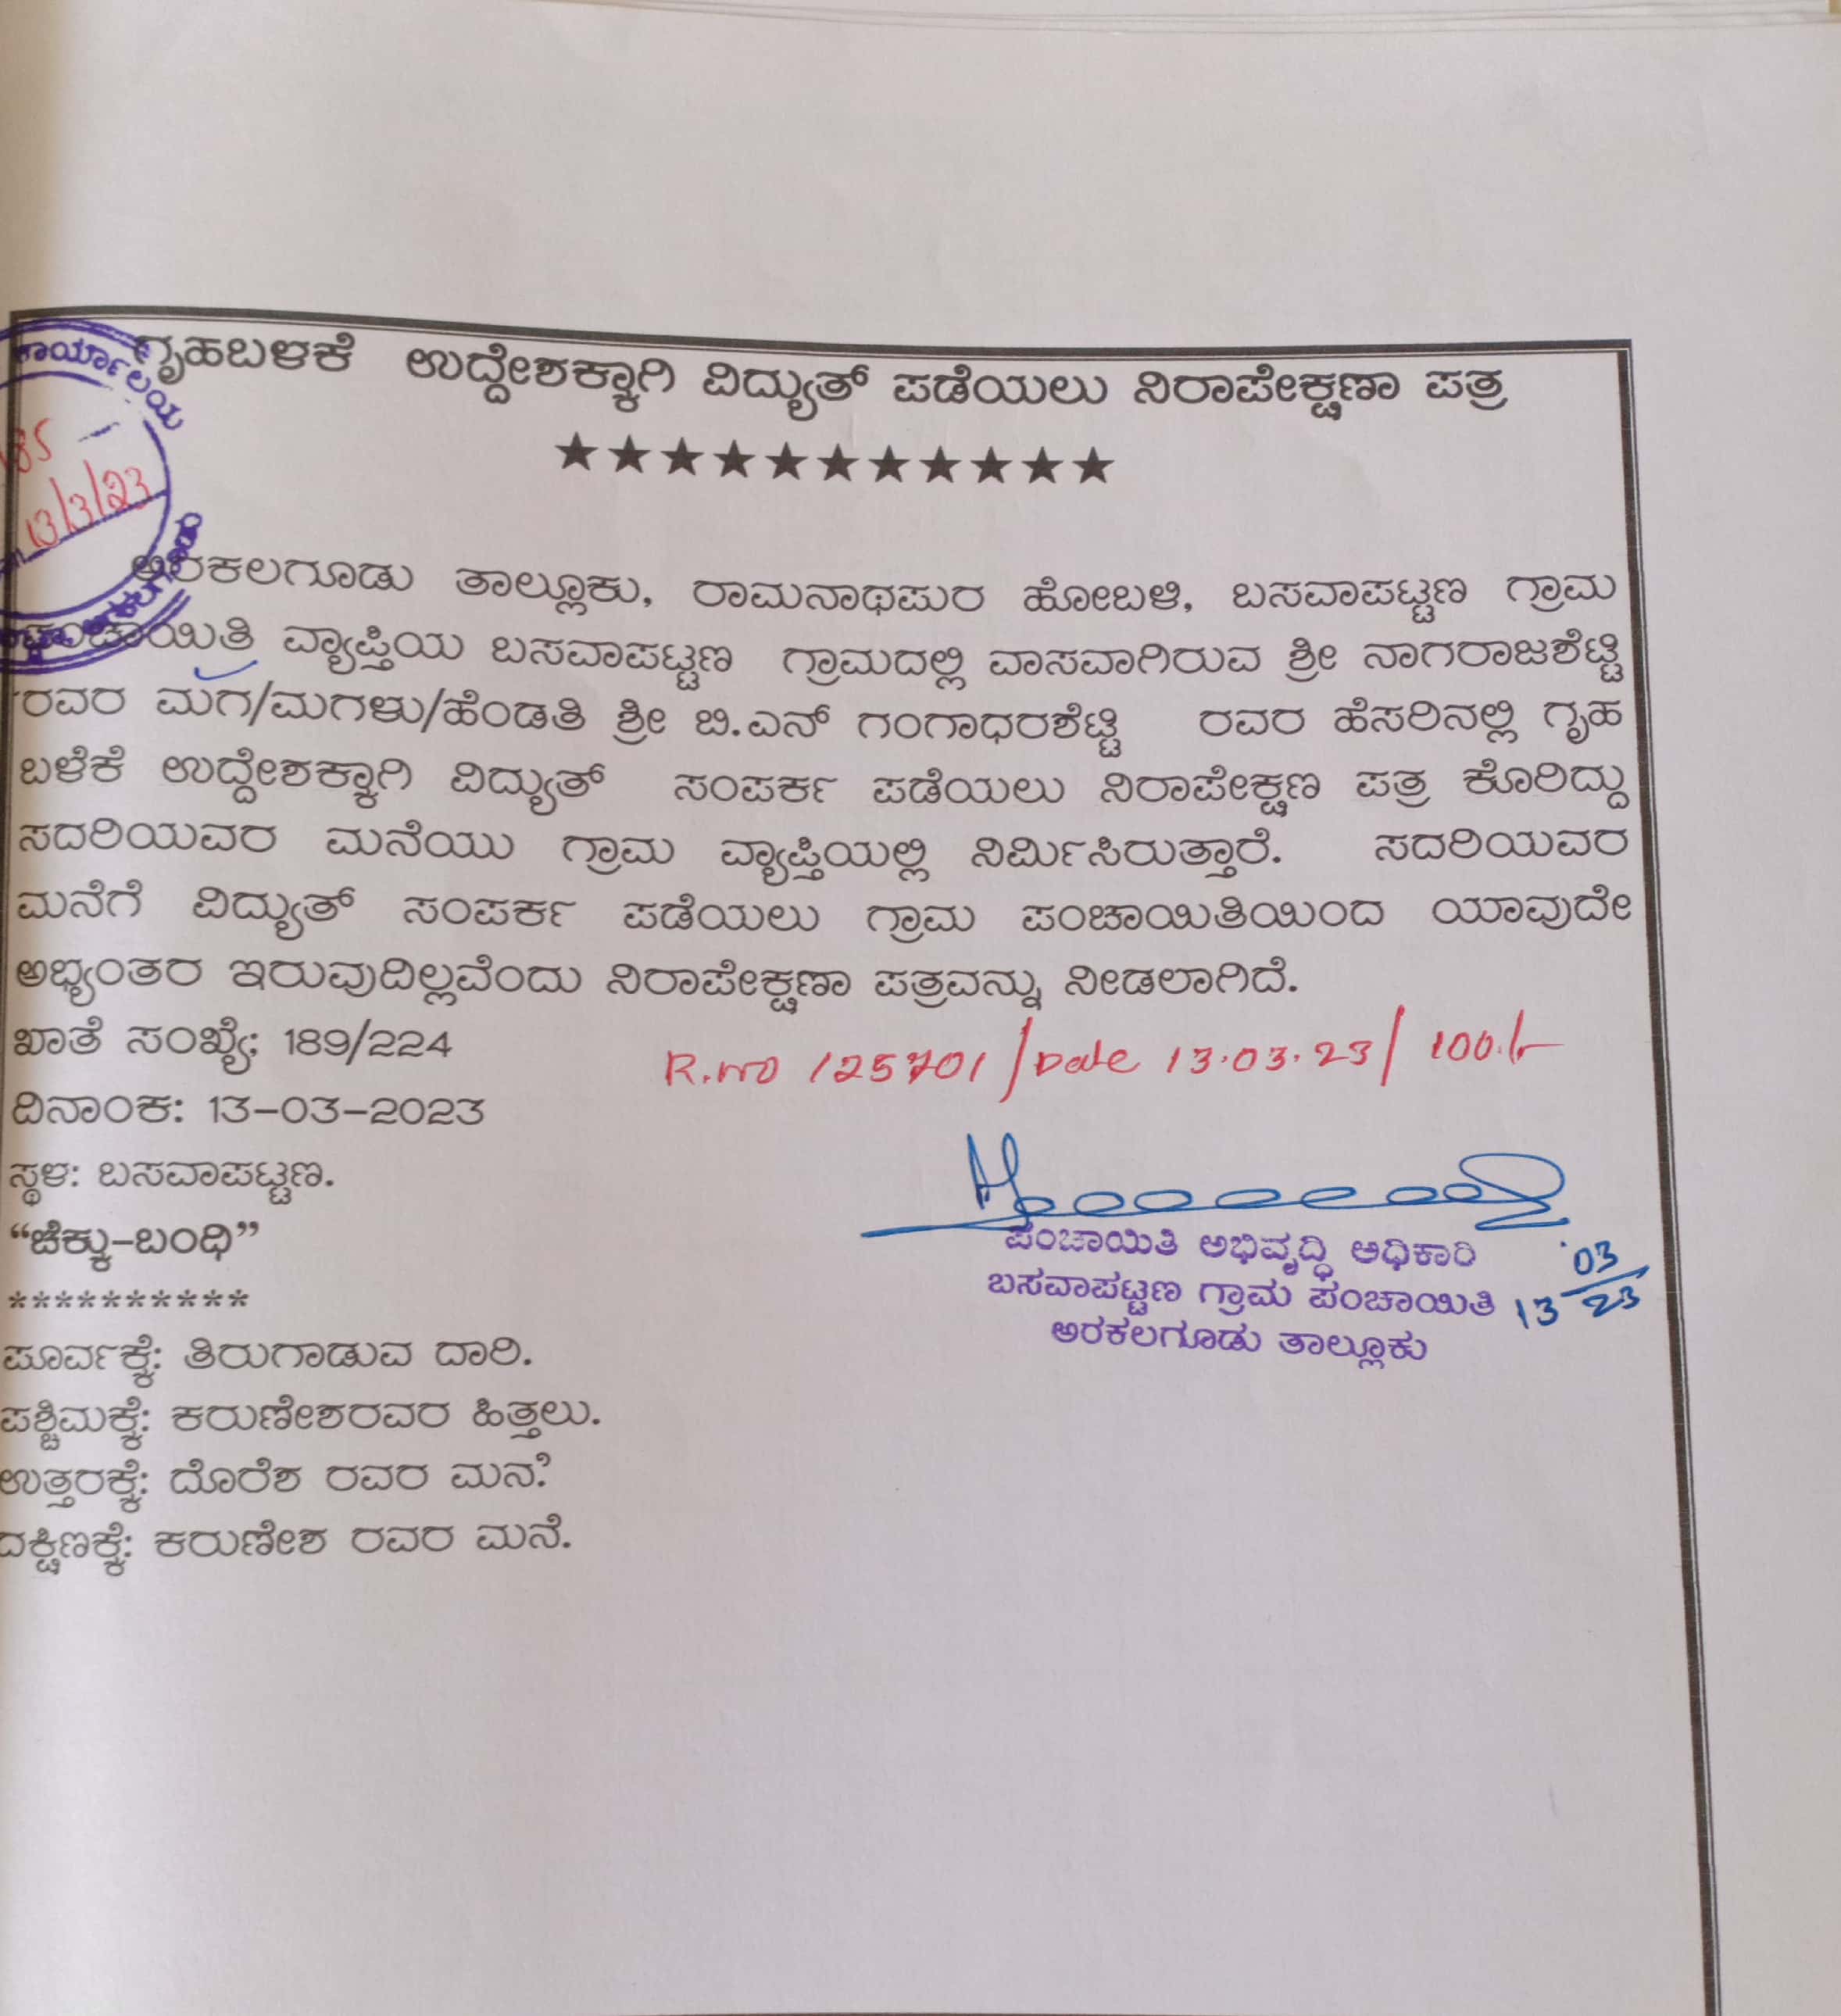 ಗೃಹಬಳಕೆ ಉದ್ದೇಶಕ್ಕಾಗಿ ವಿದ್ಯುತ್ ಪಡೆಯಲು ನಿರಾಪೇಕ್ಷಣಾ ಪತ್ರ
★★★★★★★★★★★
ಕಾರ್ಯಾಲಯ
185
13/3/23
ಅರಕಲಗೂಡು ತಾಲ್ಲೂಕು, ರಾಮನಾಥಪುರ ಹೋಬಳಿ, ಬಸವಾಪಟ್ಟಣ ಗ್ರಾಮ
ಪಂಚಾಯಿತಿ ವ್ಯಾಪ್ತಿಯ ಬಸವಾಪಟ್ಟಣ ಗ್ರಾಮದಲ್ಲಿ ವಾಸವಾಗಿರುವ ಶ್ರೀ ನಾಗರಾಜಶೆಟ್ಟಿ
ರವರ ಮಗ/ಮಗಳು/ಹೆಂಡತಿ ಶ್ರೀ ಬಿ.ಎನ್ ಗಂಗಾಧರಶೆಟ್ಟಿ ರವರ ಹೆಸರಿನಲ್ಲಿ ಗೃಹ
ಬಳೆಕೆ ಉದ್ದೇಶಕ್ಕಾಗಿ ವಿದ್ಯುತ್ ಸಂಪರ್ಕ ಪಡೆಯಲು ನಿರಾಪೇಕ್ಷಣ ಪತ್ರ ಕೊರಿದ್ದು
ಸದರಿಯವರ ಮನೆಯು ಗ್ರಾಮ ವ್ಯಾಪ್ತಿಯಲ್ಲಿ ನಿರ್ಮಿಸಿರುತ್ತಾರೆ. ಸದರಿಯವರ
ಮನೆಗೆ ವಿದ್ಯುತ್ ಸಂಪರ್ಕ ಪಡೆಯಲು ಗ್ರಾಮ ಪಂಚಾಯಿತಿಯಿಂದ ಯಾವುದೇ
ಅಭ್ಯಂತರ ಇರುವುದಿಲ್ಲವೆಂದು ನಿರಾಪೇಕ್ಷಣಾ ಪತ್ರವನ್ನು ನೀಡಲಾಗಿದೆ.
ಖಾತೆ ಸಂಖ್ಯೆ: 189/224
R.no 125701/Date 13.03.23/100./-
ದಿನಾಂಕ: 13-03-2023
ಸ್ಥಳ: ಬಸವಾಪಟ್ಟಣ.
“ಚೆಕ್ಕು-ಬಂಧಿ”
**********
ಪಂಚಾಯಿತಿ ಅಭಿವೃದ್ಧಿ ಅಧಿಕಾರಿ
ಬಸವಾಪಟ್ಟಣ ಗ್ರಾಮ ಪಂಚಾಯಿತಿ 13 03/23
ಅರಕಲಗೂಡು ತಾಲ್ಲೂಕು
ಪೂರ್ವಕ್ಕೆ: ತಿರುಗಾಡುವ ದಾರಿ.
ಪಶ್ಚಿಮಕ್ಕೆ: ಕರುಣೇಶರವರ ಹಿತ್ತಲು.
ಉತ್ತರಕ್ಕೆ: ದೊರೆಶ ರವರ ಮನೆ.
ದಕ್ಷಿಣಕ್ಕೆ: ಕರುಣೇಶ ರವರ ಮನೆ.